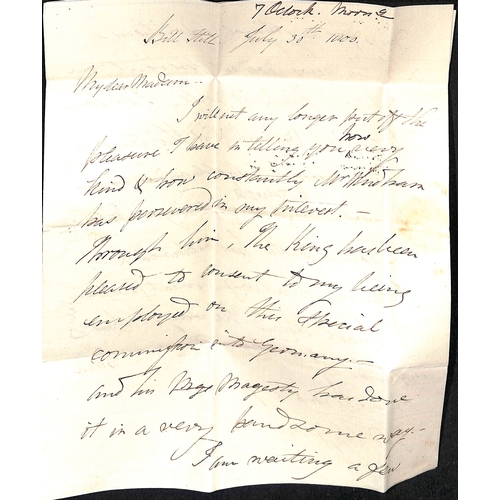 7 Oclock. Morng
July 30th 1800.
My dear Madam -
I will not any longer put off the
pleasure I have in telling you how very
kind & how constantly Mr Windham
has persevered in my Interest. -
Through him, The King has been
pleased to consent to my being
employed on this special
commission into Germany. -
and his Majesty has done
it in a very handsome way. -
I am waiting a few